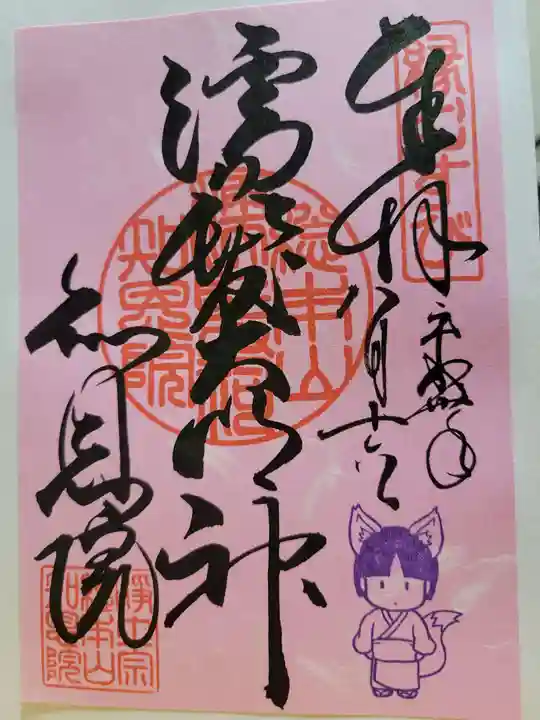 縁むすび
奉拝
八月十六日
濡髪大明神
知恩院
総本山
知恩院
浄土宗
総本山
知恩院